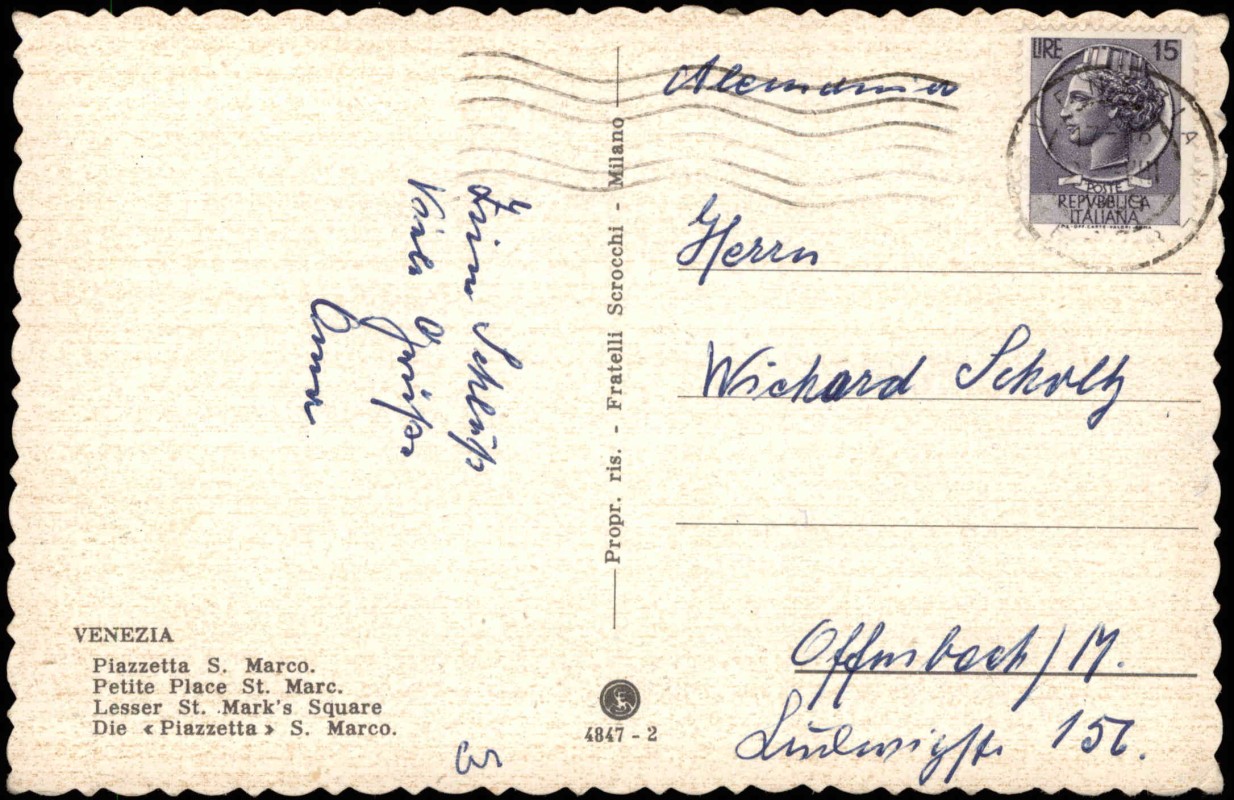 Alemania
LIRE 15
POSTE
REPVBBLICA
ITALIANA
Herrn
Wichard Scholtz
Offenbach/M.
Ludwigstr. 156.
Zum Schluß
Viele Grüße
Propr. ris. - Fratelli Scrocchi - Milano
VENEZIA
Piazzetta S. Marco.
Petite Place St. Marc.
Lesser St. Mark's Square
Die «Piazzetta» S. Marco.
4847 - 2